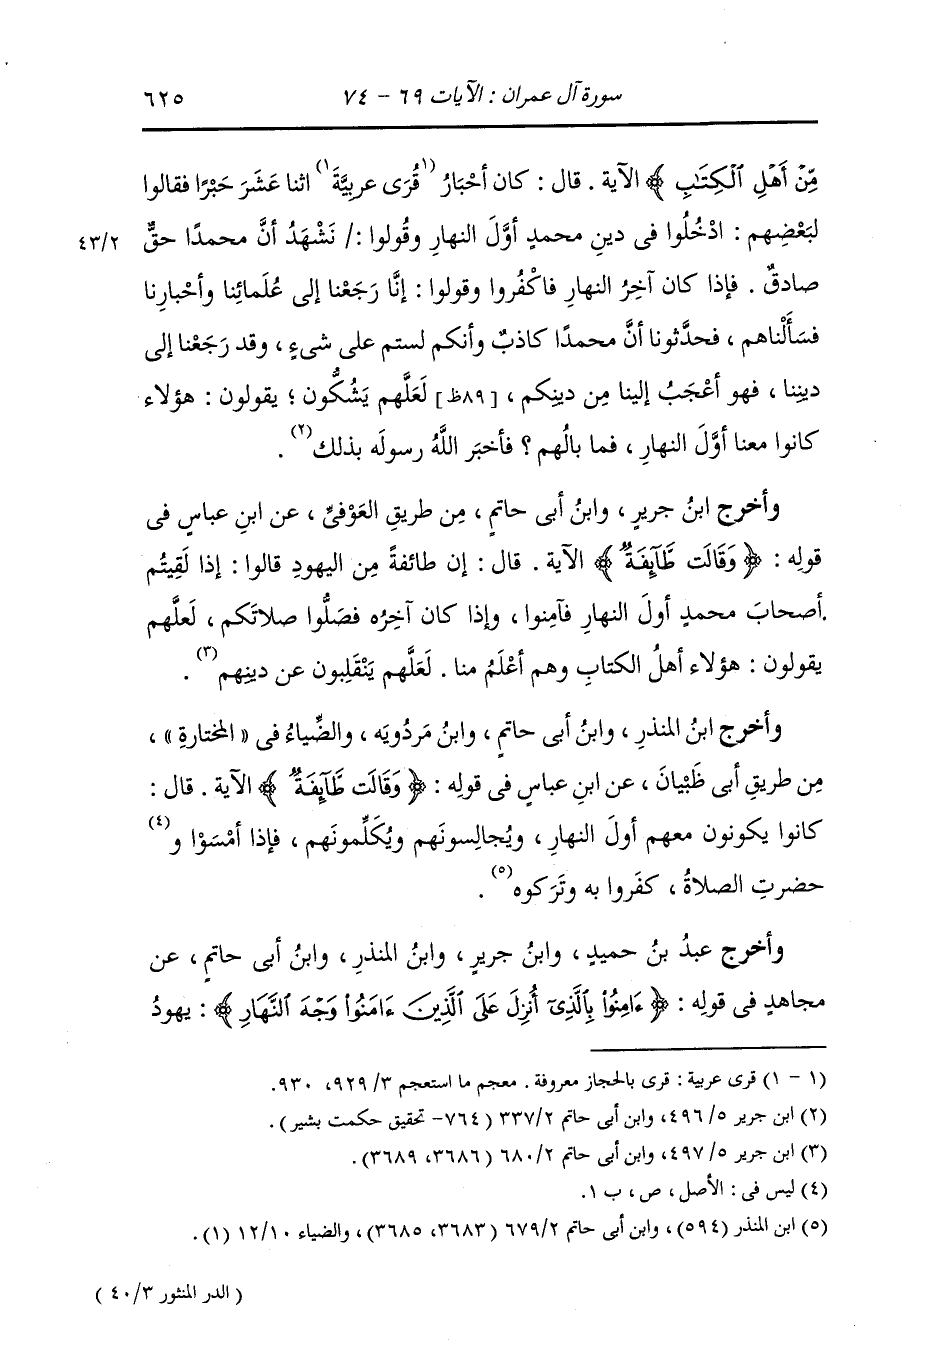 سورة آل عمران : الآيات ٦٩ - ٧٤ ٦٢٥
مِّنْ أَهْلِ ٱلْكِتَٰبِ ﴾ الآية . قال : كان أحْبَارُ (١قُرَى عربِيَّةَ١) اثنا عَشَرَ حَبْرًا فقالوا
لبَعْضِهم : ادْخُلُوا فى دينِ محمدٍ أوَّلَ النهارِ وقُولوا :/ نَشْهَدُ أنَّ محمدًا حقٌّ ٤٣/٢
صادقٌ . فإذا كان آخِرُ النهارِ فاكْفُروا وقولوا : إنَّا رَجَعْنا إلى عُلَمائِنا وأحْبارِنا
فسَأَلْناهم ، فحدَّثونا أنَّ محمدًا كاذبٌ وأنكم لستم على شىءٍ ، وقد رَجَعْنا إلى
دينِنا ، فهو أعْجَبُ إلينا مِن دينِكم ، [٨٩ظ] لَعَلَّهم يَشُكُّون ؛ يقولون : هؤلاء
كانوا معنا أوَّلَ النهارِ ، فما بالُهم ؟ فأخبَر اللَّهُ رسولَه بذلك(٢) .
وأخرج ابنُ جريرٍ ، وابنُ أبى حاتمٍ ، مِن طريقِ العَوْفىِّ ، عن ابنِ عباسٍ فى
قولِه : ﴿ وَقَالَت طَّآئِفَةٌ ﴾ الآية . قال : إن طائفةً مِن اليهودِ قالوا : إذا لَقِيتُم
أصحابَ محمدٍ أولَ النهارِ فآمِنوا ، وإذا كان آخِرُه فصَلُّوا صلاتَكم ، لَعلَّهم
يقولون : هؤلاء أهلُ الكتابِ وهم أعْلَمُ منا . لَعَلَّهم يَنْقَلِبون عن دينِهم(٣) .
وأخرج ابنُ المنذرِ ، وابنُ أبى حاتمٍ ، وابنُ مَردُويَه ، والضِّياءُ فى « المختارةِ » ،
مِن طريقِ أبى ظَبْيانَ ، عن ابنِ عباسٍ فى قولِه : ﴿ وَقَالَت طَّآئِفَةٌ ﴾ الآية . قال :
كانوا يكونون معهم أولَ النهارِ ، ويُجالِسونَهم ويُكَلِّمونَهم ، فإذا أمْسَوْا و(٤)
حضرتِ الصلاةُ ، كفَروا به وتَرَكوه(٥) .
وأخرج عبدُ بنُ حميدٍ ، وابنُ جريرٍ ، وابنُ المنذرِ ، وابنُ أبى حاتمٍ ، عن
مجاهدٍ فى قولِه : ﴿ ءَامِنُوا۟ بِٱلَّذِىٓ أُنزِلَ عَلَى ٱلَّذِينَ ءَامَنُوا۟ وَجْهَ ٱلنَّهَارِ ﴾ : يهودُ
(١ - ١) قرى عربية : قرى بالحجاز معروفة . معجم ما استعجم ٣/ ٩٢٩، ٩٣٠.
(٢) ابن جرير ٥/ ٤٩٦، وابن أبى حاتم ٣٣٧/٢ (٧٦٤- تحقيق حكمت بشير) .
(٣) ابن جرير ٥/ ٤٩٧، وابن أبى حاتم ٦٨٠/٢ (٣٦٨٦، ٣٦٨٩).
(٤) ليس فى : الأصل ، ص ، ب ١.
(٥) ابن المنذر (٥٩٤) ، وابن أبى حاتم ٦٧٩/٢ (٣٦٨٣، ٣٦٨٥) ، والضياء ١٢/١٠ (١) .
( الدر المنثور ٤٠/٣ )